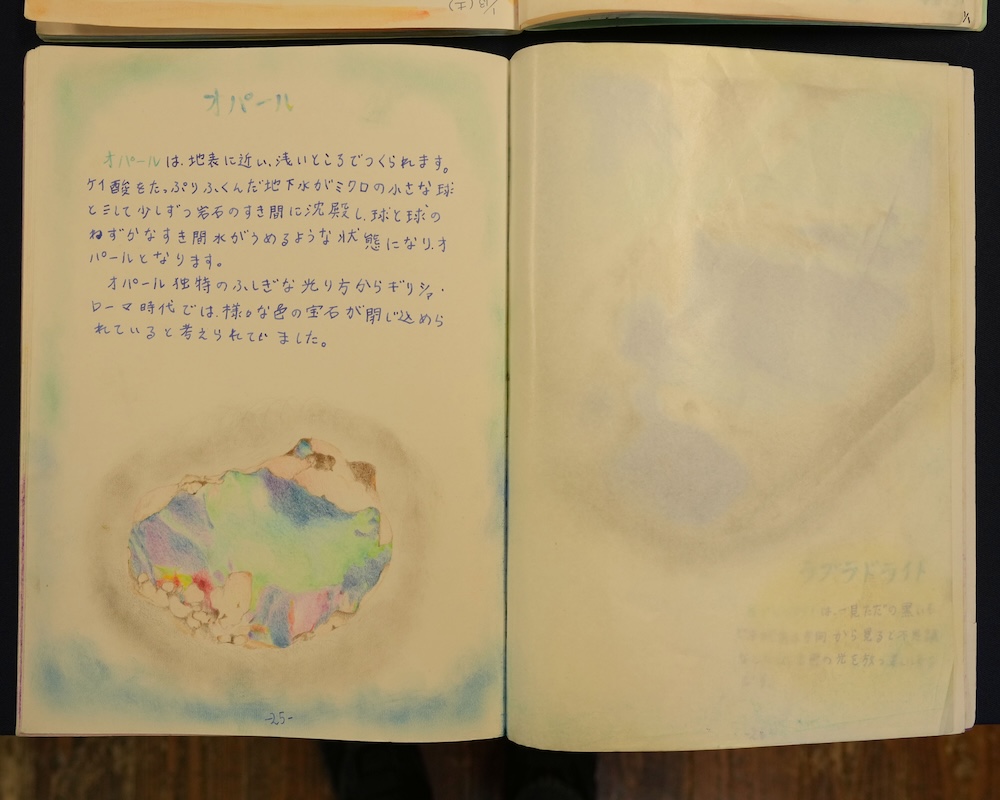 1/18(ホ)
オパール
オパールは、地表に近い、浅いところでつくられます。
ケイ酸をたっぷりふくんだ地下水がミクロの小さな球
として少しずつ岩石のすき間に沈殿し、球と球の
わずかなすき間水がうめるような状態になり、オ
パールとなります。
オパール独特のふしぎな光り方からギリシァ・
ローマ時代では、様々な色の宝石が閉じ込めら
れていると考えられていました。
-25-
ラブラドライト
は、一見ただの黒い
から見ると